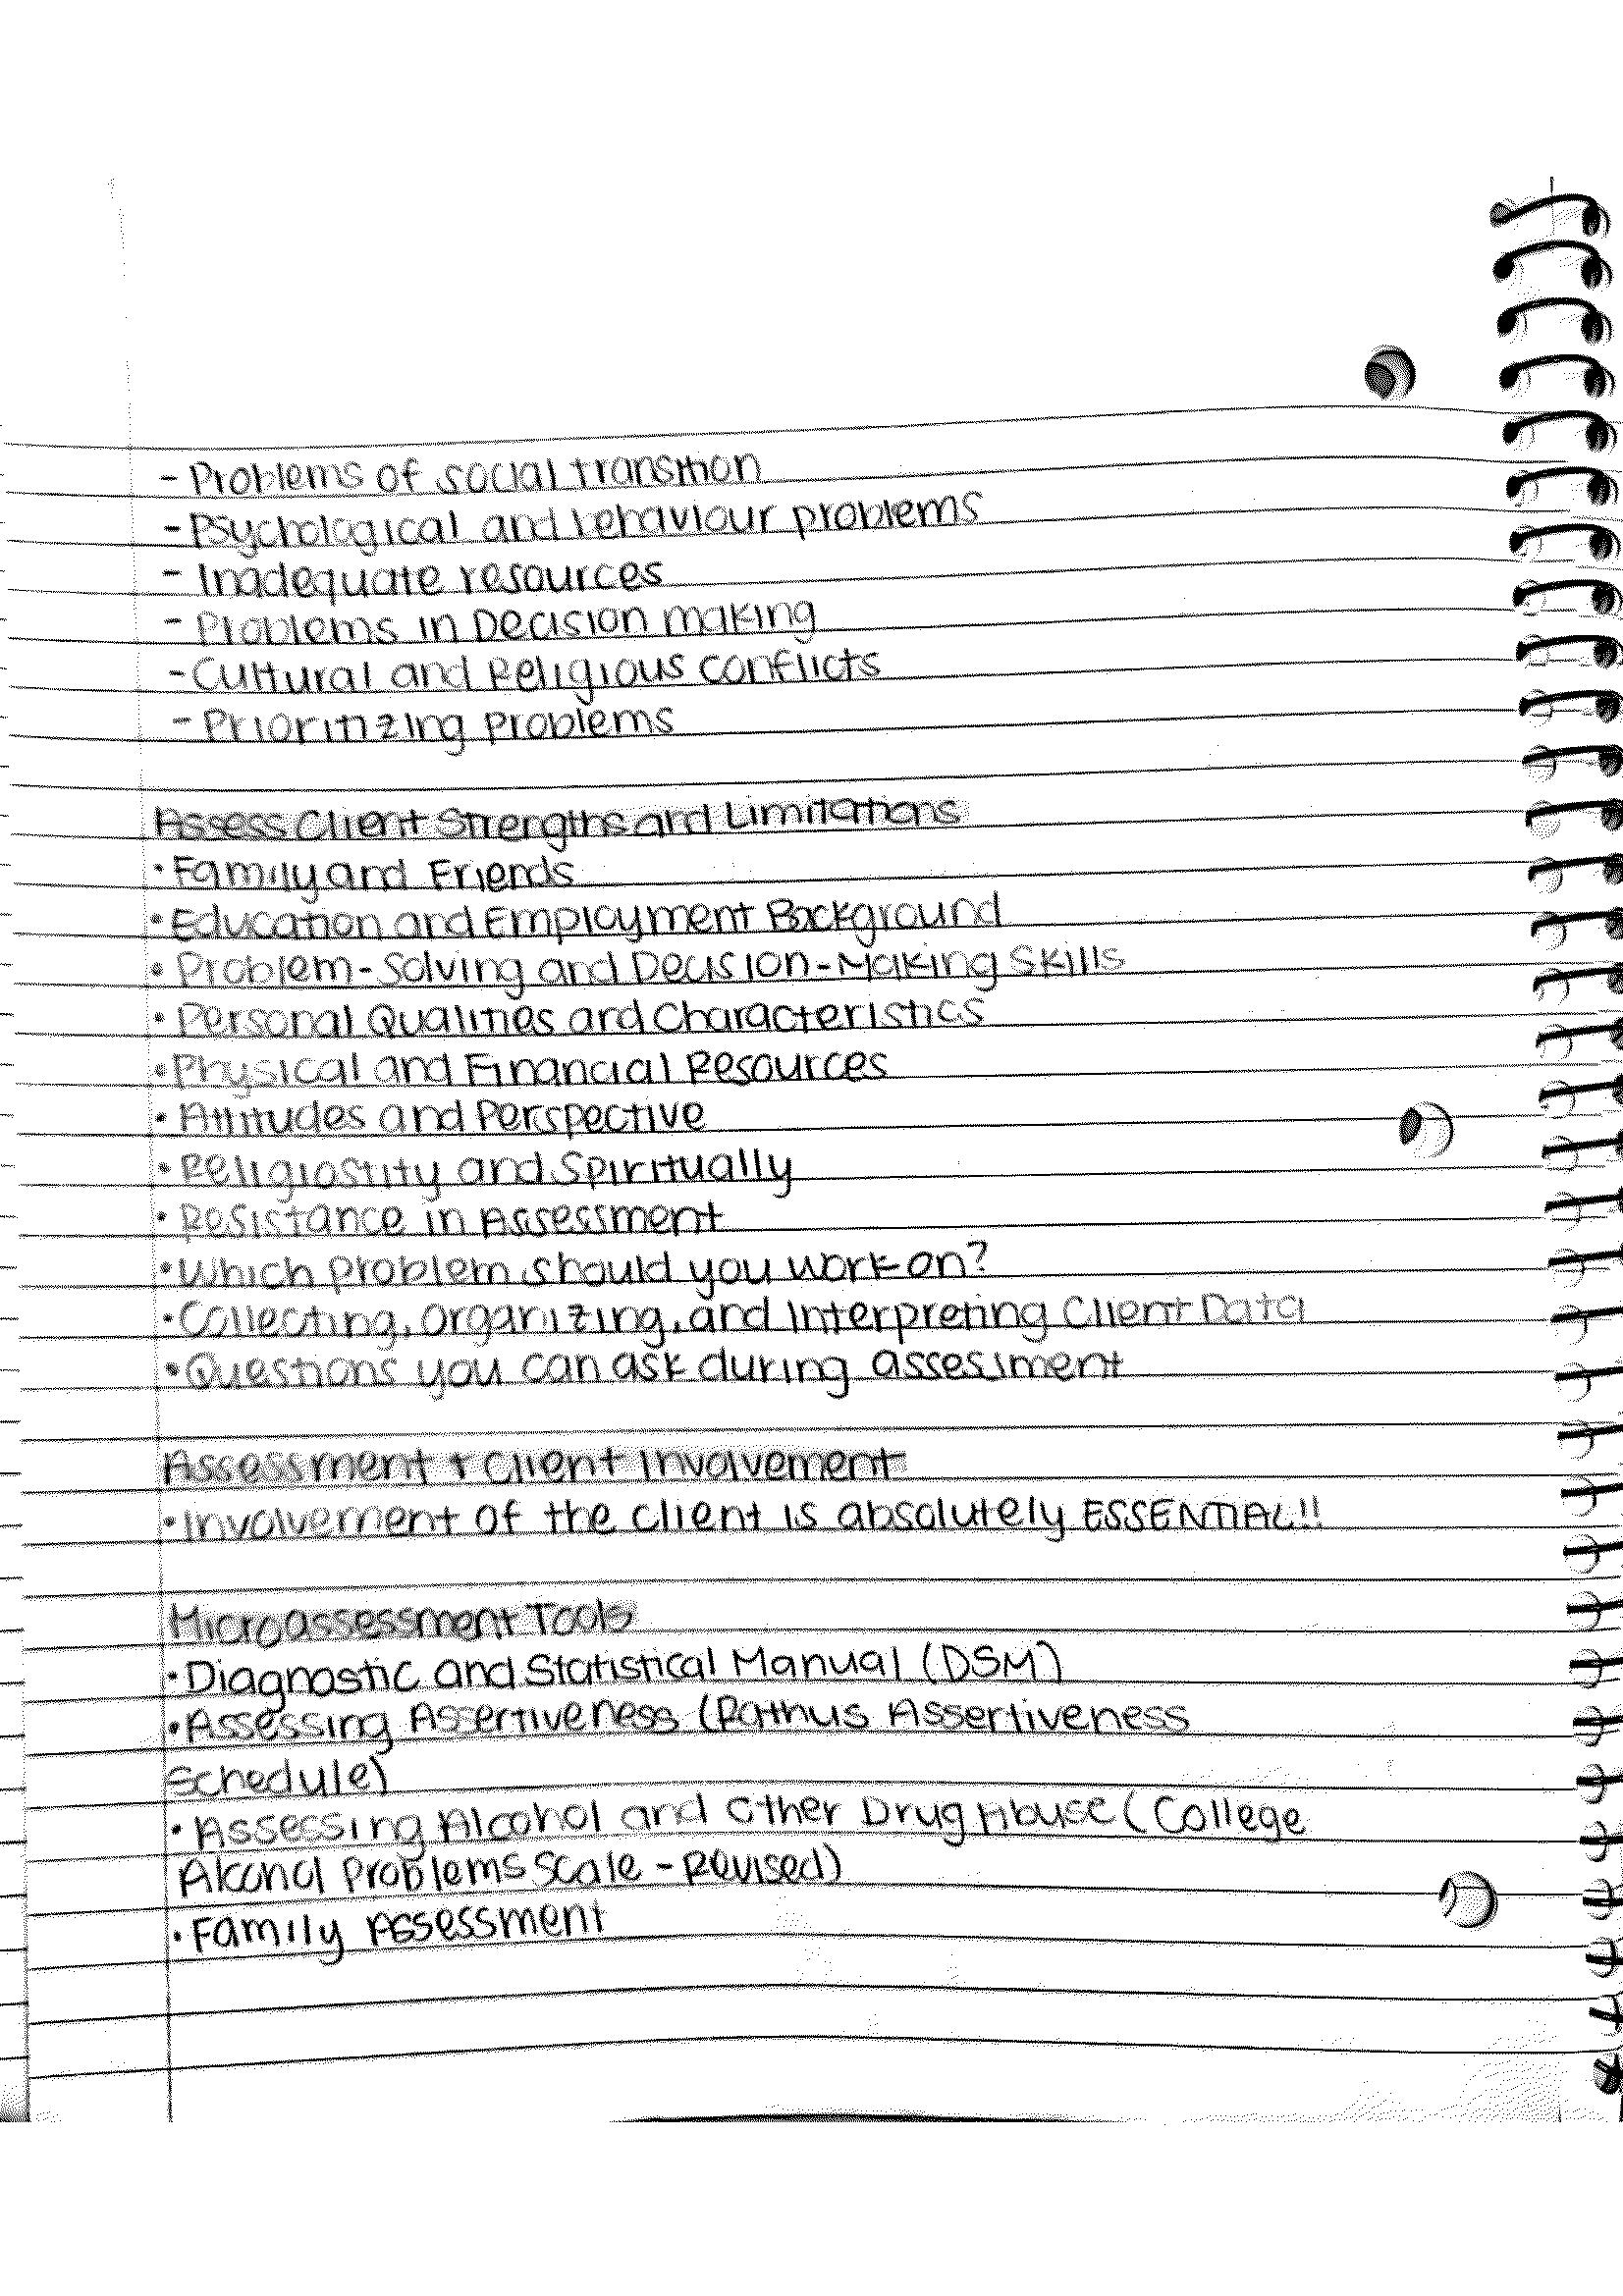 - Problems of social transition
- Psychological and behaviour problems
- Inadequate resources
- Problems in Decision making
- Cultural and Religious conflicts
- Prioritizing problems
Assess Client Strengths and Limitations
• Family and Friends
• Education and Employment Background
• Problem-Solving and Decision-Making Skills
• Personal Qualities and Characteristics
• Physical and Financial Resources
• Attitudes and Perspective
• Religiostity and Spiritually
• Resistance in Assessment
• Which problem should you work on?
• Collecting, Organizing, and Interpreting Client Data
• Questions you can ask during assessment
Assessment + Client Involvement
• Involvement of the client is absolutely ESSENTIAL!!
Microassessment Tools
• Diagnostic and Statistical Manual (DSM)
• Assessing Assertiveness (Rathus Assertiveness
Schedule)
• Assessing Alcohol and Other Drug Abuse (College
Alcohol Problems Scale - Revised)
• Family Assessment